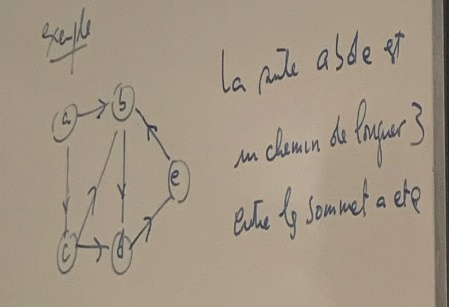 exemple
a
b
c
d
e
La suite abde est
un chemin de longuer 3
entre les sommet a et e